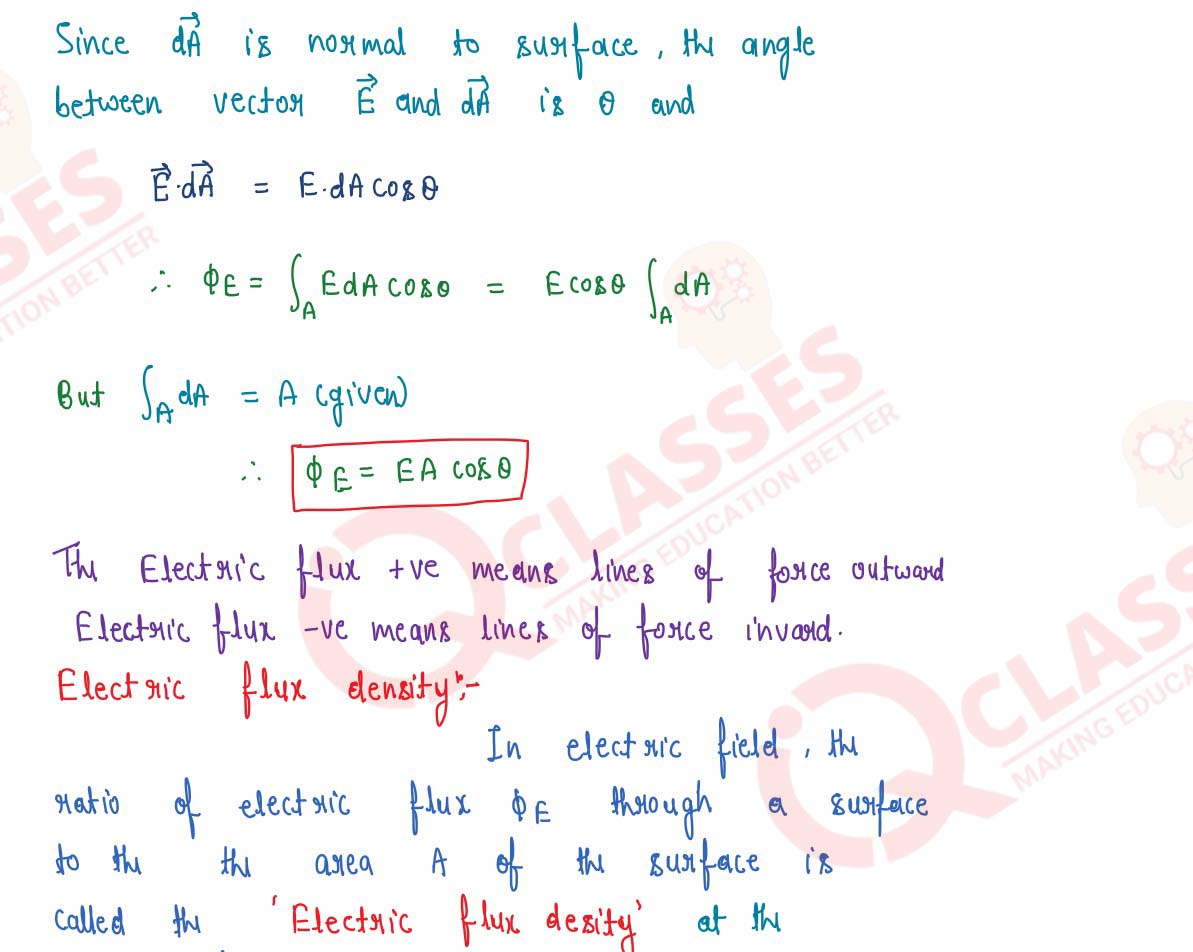 Since dA⃗ is normal to surface, the angle
between vector E⃗ and dA⃗ is θ and
E⃗.dA⃗ = E.dA cosθ
∴ ϕE = ∫A EdA cosθ = Ecosθ ∫A dA
But ∫A dA = A (given)
∴ ϕE = EA cosθ
The Electric flux +ve means lines of force outward
Electric flux -ve means lines of force invard.
Electric flux density:-
In electric field, the
ratio of electric flux ϕE through a surface
to the the area A of the surface is
called the 'Electric flux desity' at the
SSES
TION BETTER
iQ CLASSES
MAKING EDUCATION BETTER
iQ CLASSES
MAKING EDUCA